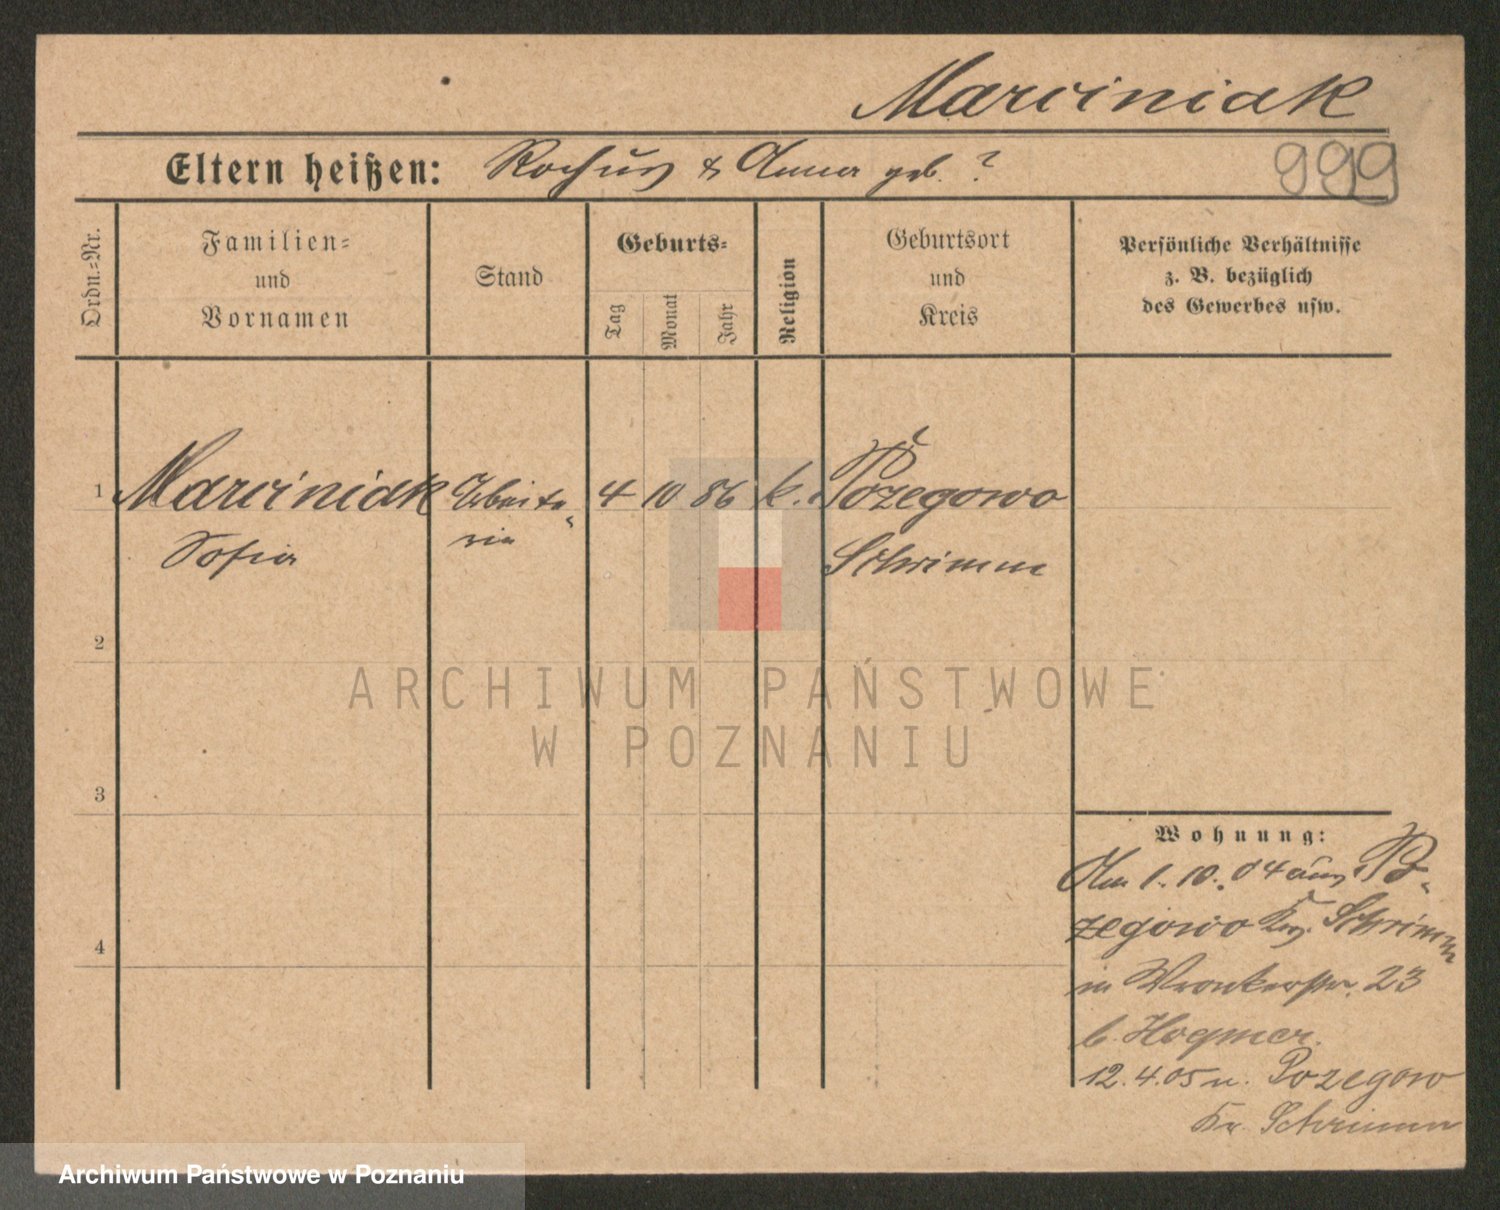 Marciniak
Eltern heißen: Rochus & Anna geb. ?
999
Ordn.-Nr.
Familien-
und
Vornamen
Stand
Geburts-
Tag
Monat
Jahr
Religion
Geburtsort
und
Kreis
Persönliche Verhältnisse
z. B. bezüglich
des Gewerbes usw.
1 Marciniak Arbeite- 4 10 86 k. Pożegowo
Sofia rin Schrimm
2
3
4
Wohnung:
Am 1. 10. 04 aus Po-
zegowo Krs. Schrimm
in Wronkerstr. 23
b.
12. 4. 05 n. Pozegowo
Kr. Schrimm
ARCHIWUM PAŃSTWOWE
W POZNANIU
Archiwum Państwowe w Poznaniu